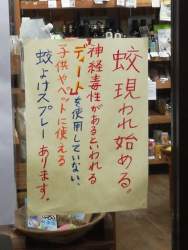 蚊現われ始める。
神経毒性があるといわれる
ディートを使用していない、
子供やペットに使える
蚊よけスプレー
あります。